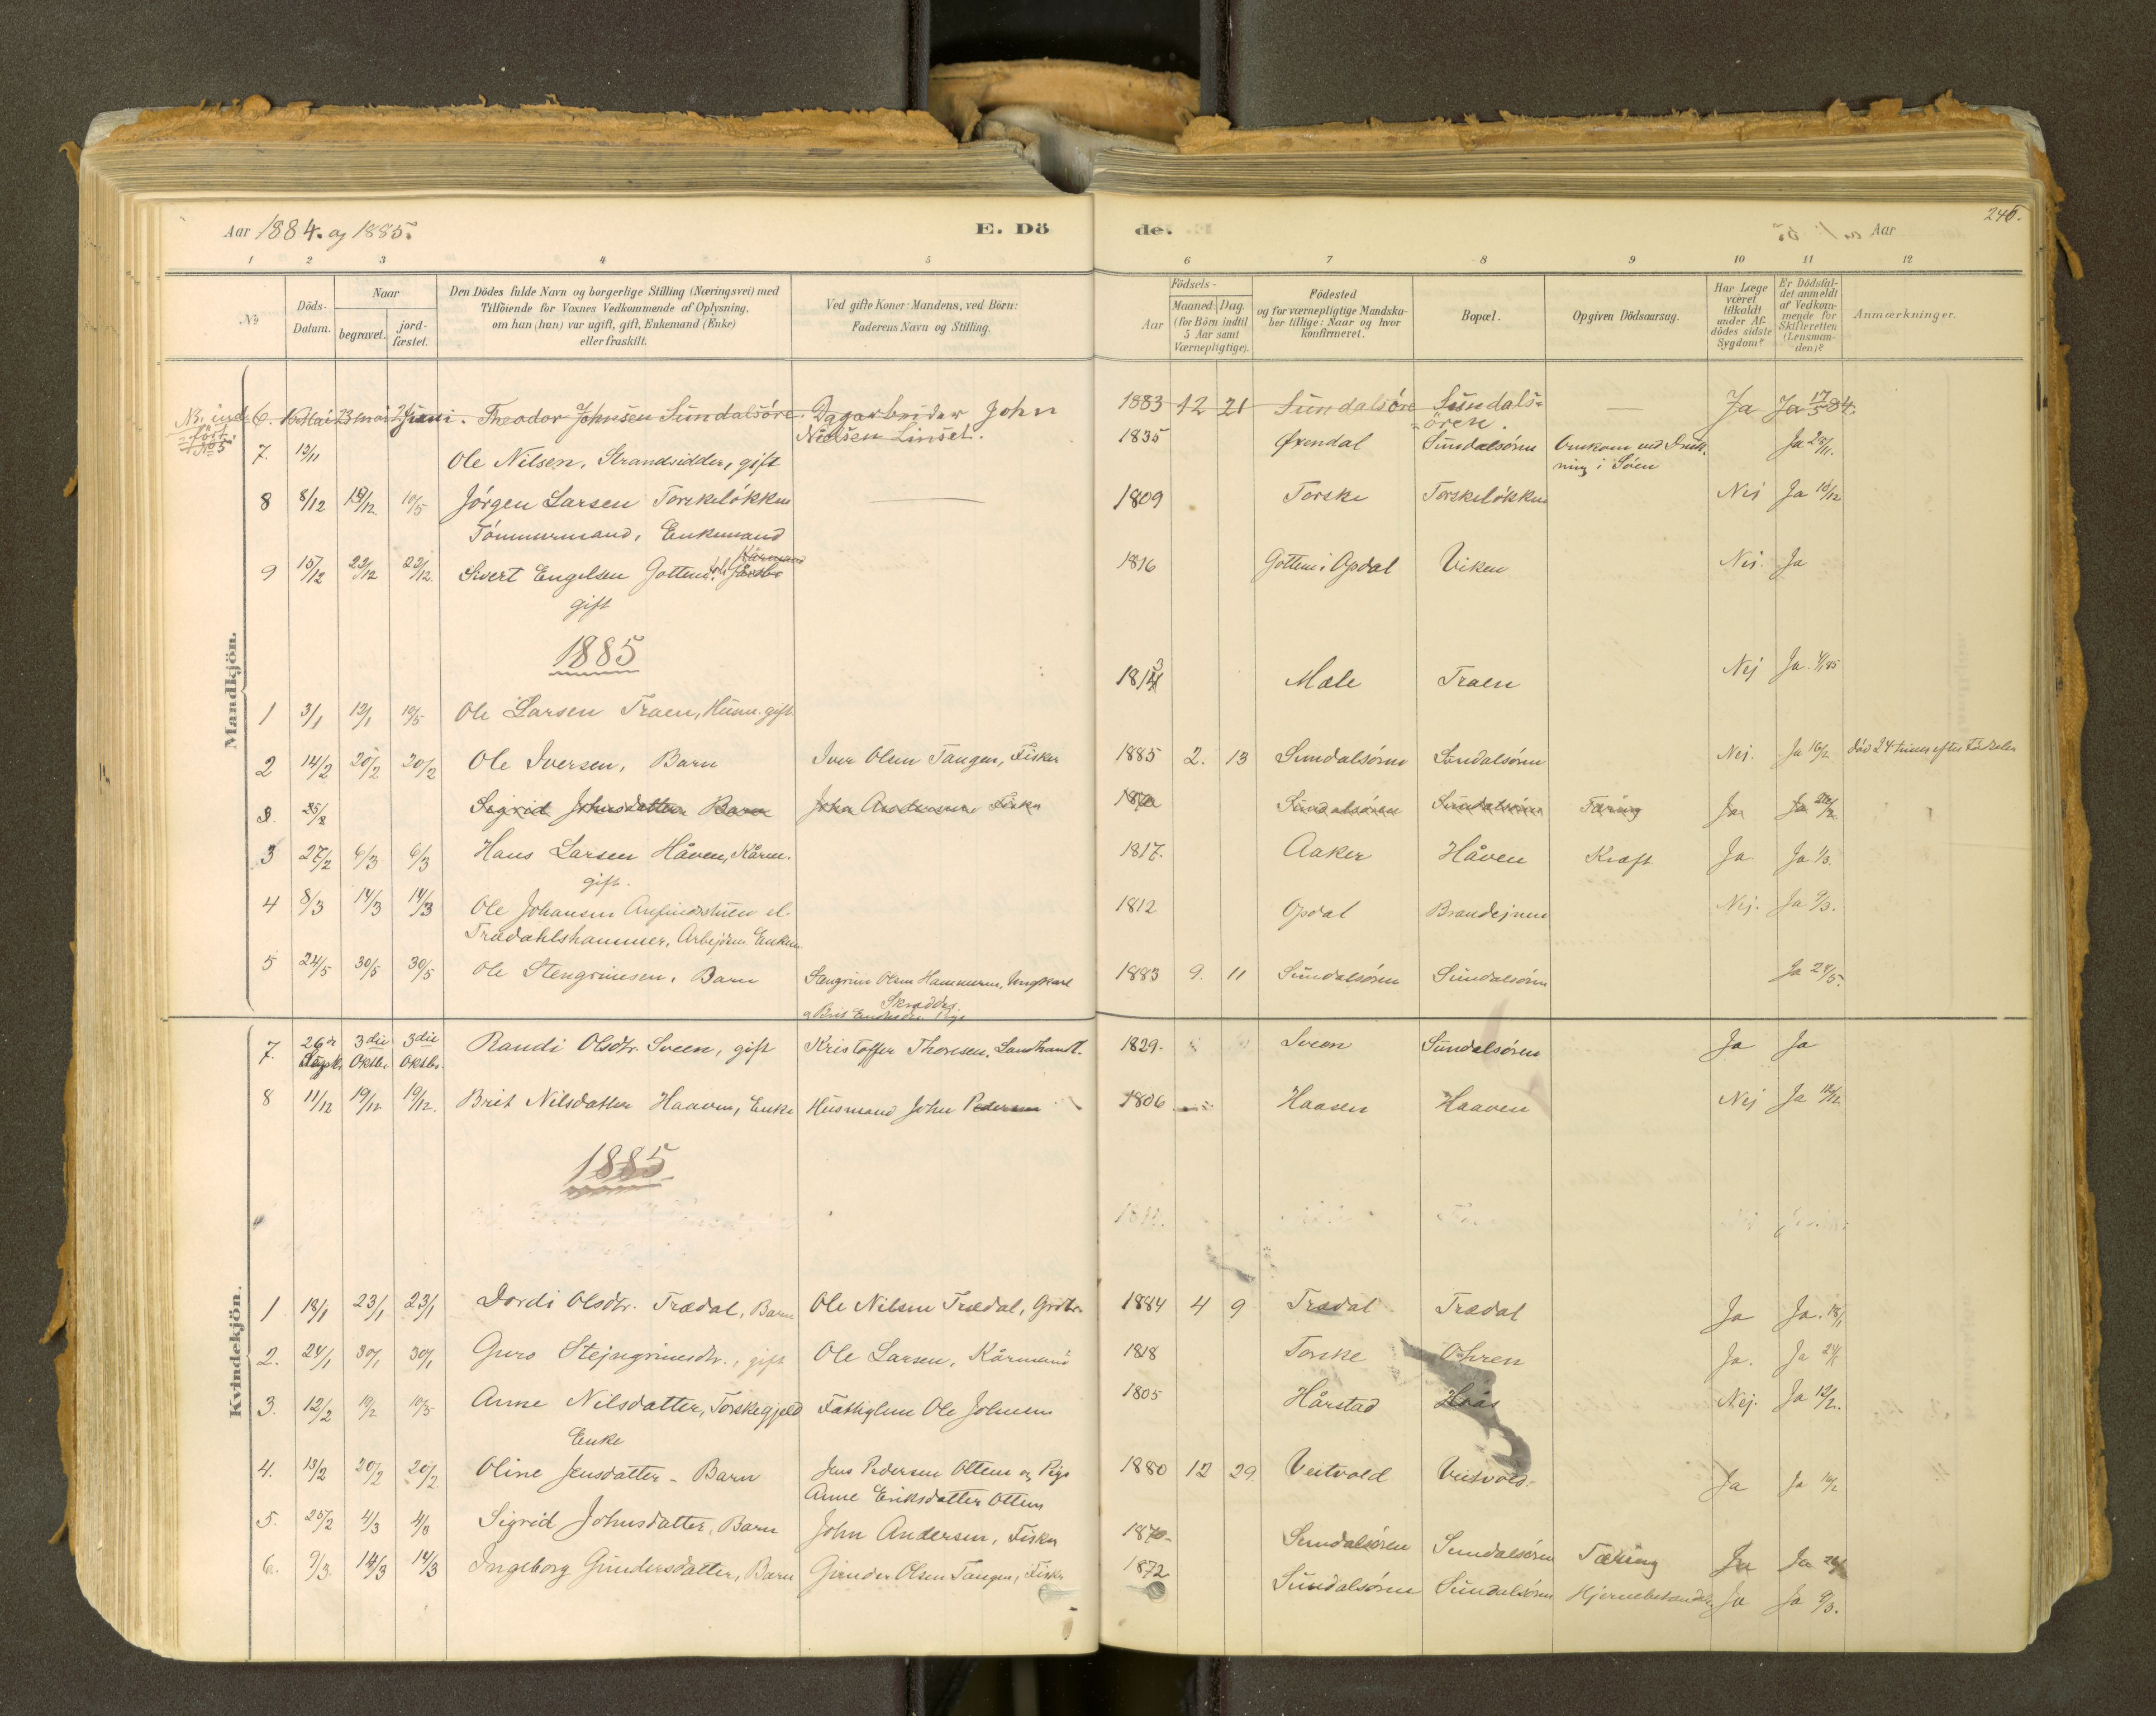 Aar 1884. og 1885.
E. Dö
de.
Aar
245.
1 2 3 4 5 6 7 8 9 10 11 12
No
Döds-Datum.
Naar
begravet.
jord-fæstet.
Den Dödes fulde Navn og borgerlige Stilling (Næringsvei) med
Tilföiende for Voxnes Vedkommende af Oplysning,
om han (hun) var ugift, gift, Enkemand (Enke)
eller fraskilt.
Ved gifte Koner: Mandens, ved Börn:
Faderens Navn og Stilling.
Födsels-
Aar
Maaned. Dag.
(for Börn indtil
5 Aar samt
Værnepligtige).
Födested
og for værnepligtige Mandska-
ber tillige: Naar og hvor
konfirmeret.
Bopæl.
Opgiven Dödsaarsag.
Har Læge
været
tilkaldt
under Af-
dödes sidste
Sygdom?
Er Dödsfal-
det anmeldt
af Vedkom-
mende for
Skifteretten
(Lensman-
den)?
Anmærkninger.
Mandkjön.
6. 16 Mai 23 mai 2 juni. Theodor Johnsen Sundalsöre. Dagarbeider John 1883 12 21 Sundalsöre Sundals- Ja Ja 17/5 84.
Nielsen Linset. ören.
7. 13/11 Ole Nilsen, Strandsidder, gift 1835 Øxendal Sundalsören Omkom ved Druk- Ja 28/11.
ning i Söen
8 8/12 18/12 10/5 Jörgen Larsen Torskelökken 1809 Torske Torskelökken Nei Ja 10/12
Tömmermand, Enkemand
9 15/12 23/12 23/12 Sivert Engelsen Gottem, 1816 Gottem i Opdal Viken Nei. Ja
gift
1885
1 3/1 13/1 10/5 Ole Larsen Traen, Husm. gift. 1813 Male Traen Nej Ja. 4/1 85
2 14/2 20/2 20/2 Ole Iversen, Barn Iver Olsen Tangen, Fisker 1885 2. 13 Sundalsören Sundalsören Nej. Ja 16/2 död 24 timer efter Födselen
3. 25/2 Sigrid Johnsdatter Barn John Andersen Fisker 1870 Sundalsören Sundalsören Tæring Ja Ja 26/2
3 27/2 6/3 6/3 Hans Larsen Håven, Kårm. 1817. Aaker Håven Kræft Ja Ja 1/3.
gift.
4 8/3 14/3 14/3 Ole Johansen Anfindstuen el. 1812 Opdal Brandejnen Nej. Ja 9/3.
Trædahlshammer, Arbejdsm. Enkem.
5 24/5 30/5 30/5 Ole Stengrimsen, Barn Stengrim Olsen Hammeren, Ungkarl 1883 9. 11 Sundalsören Sundalsören Ja 24/5.
Kvindekjön.
7. 26de Septb. 3die Oktbr. 3die Oktbr. Randi Olsdtr. Sveen, gift Kristoffer Thoresen, Landhandl. 1829. Sveen Sundalsören Ja Ja
8 11/12 19/12 19/12. Brit Nilsdatter Haaven, Enke Husmand John Pedersen 1806 Haasen Haaven Nej Ja 12/12
1885
1 18/1 23/1 23/1 Dordi Olsdtr. Trædal, Barn Ole Nilsen Trædal, Grdbr. 1884 4 9 Trædal Trædal Ja Ja. 18/1
2. 24/1 30/1 30/1 Guro Stejngrimsdtr., gift Ole Larsen, Kårmand 1818 Torske Ohren Ja. Ja 24/1
3. 12/2 19/2 10/5 Anne Nilsdatter, Torskegjeld Fattiglem Ole Johnsen 1805 Hårstad Hoås Nej. Ja 12/2.
Enke
4. 13/2 20/2 20/2 Oline Jensdatter - Barn Jens Pedersen Ottem og Pige 1880 12 29 Veitvold Veitvold Ja Ja 14/2
Anne Eriksdatter Ottem
5. 25/2 4/3 4/3 Sigrid Johnsdatter, Barn John Andersen, Fisker 1870 Sundalsören Sundalsören Tæring Ja Ja 26/2
6. 9/3. 14/3 14/3 Ingeborg Gundersdatter, Barn Gunder Olsen Tangen, Fisker 1872 Sundalsören Sundalsören Hjernebetændels. Ja Ja 9/3.